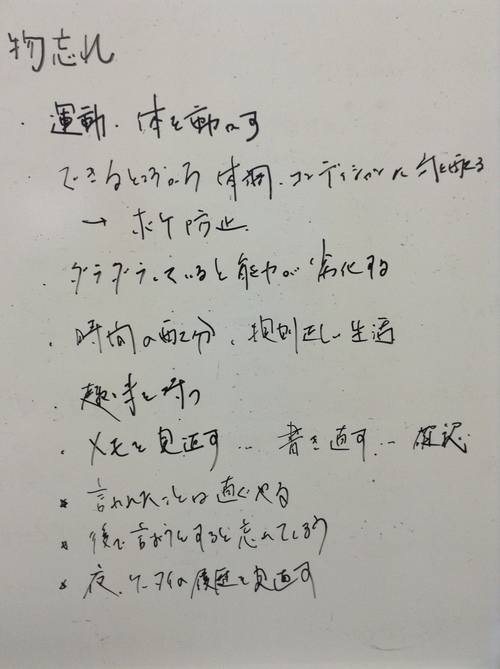 物忘れ
・運動、体を動かす
できるところから 体調、コンディションに気を配る
→ ボケ防止
・ダラダラしていると能力が劣化する
・時間の配分、規則正しい生活
趣味を持つ
・メモを見直す… 書き直す… 確認
* 言われたことは直ぐやる
* 後で言おうとすると忘れてしまう
* 夜、ケータイの履歴を見直す